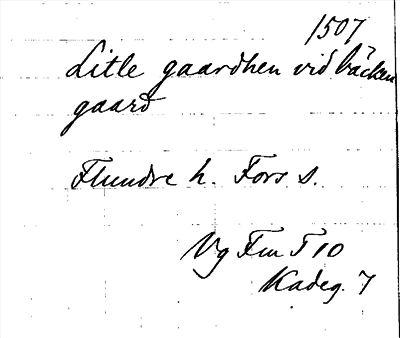 1507
Litle gaardhen vid bäcken
gaard
Flundre h. Fors s.
Vg Fm T 10
Kadeg. 7